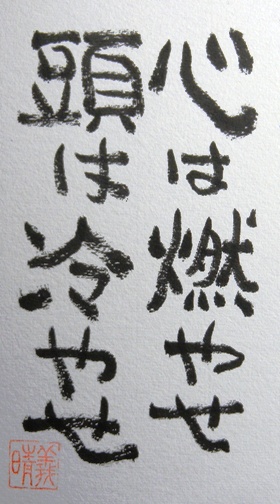 心は燃やせ
頭は冷やせ
義晴